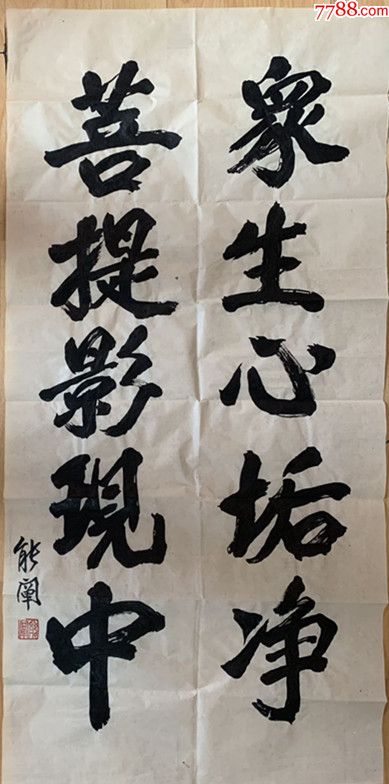 眾生心垢净
菩提影現中
能阐
7788.com